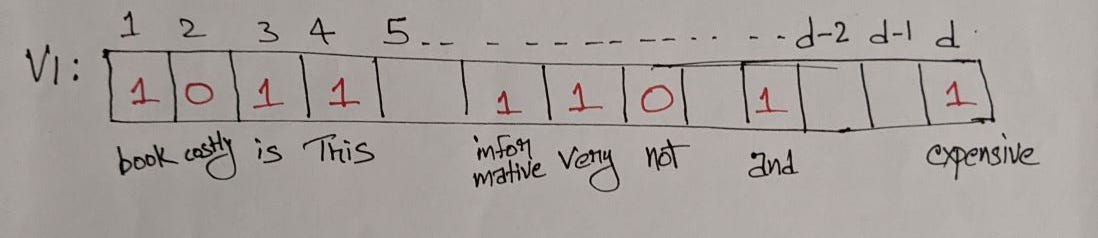 1 2 3 4 5-- - - - - - - - - · · - - d-2 d-1 d
V1: 1 0 1 1 1 1 0 1 1
book costly is This infor very not and expensive
mative